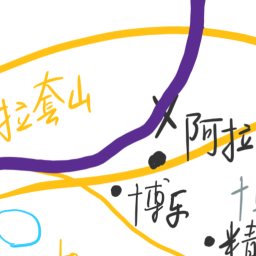 拉套山
阿拉
博乐
精